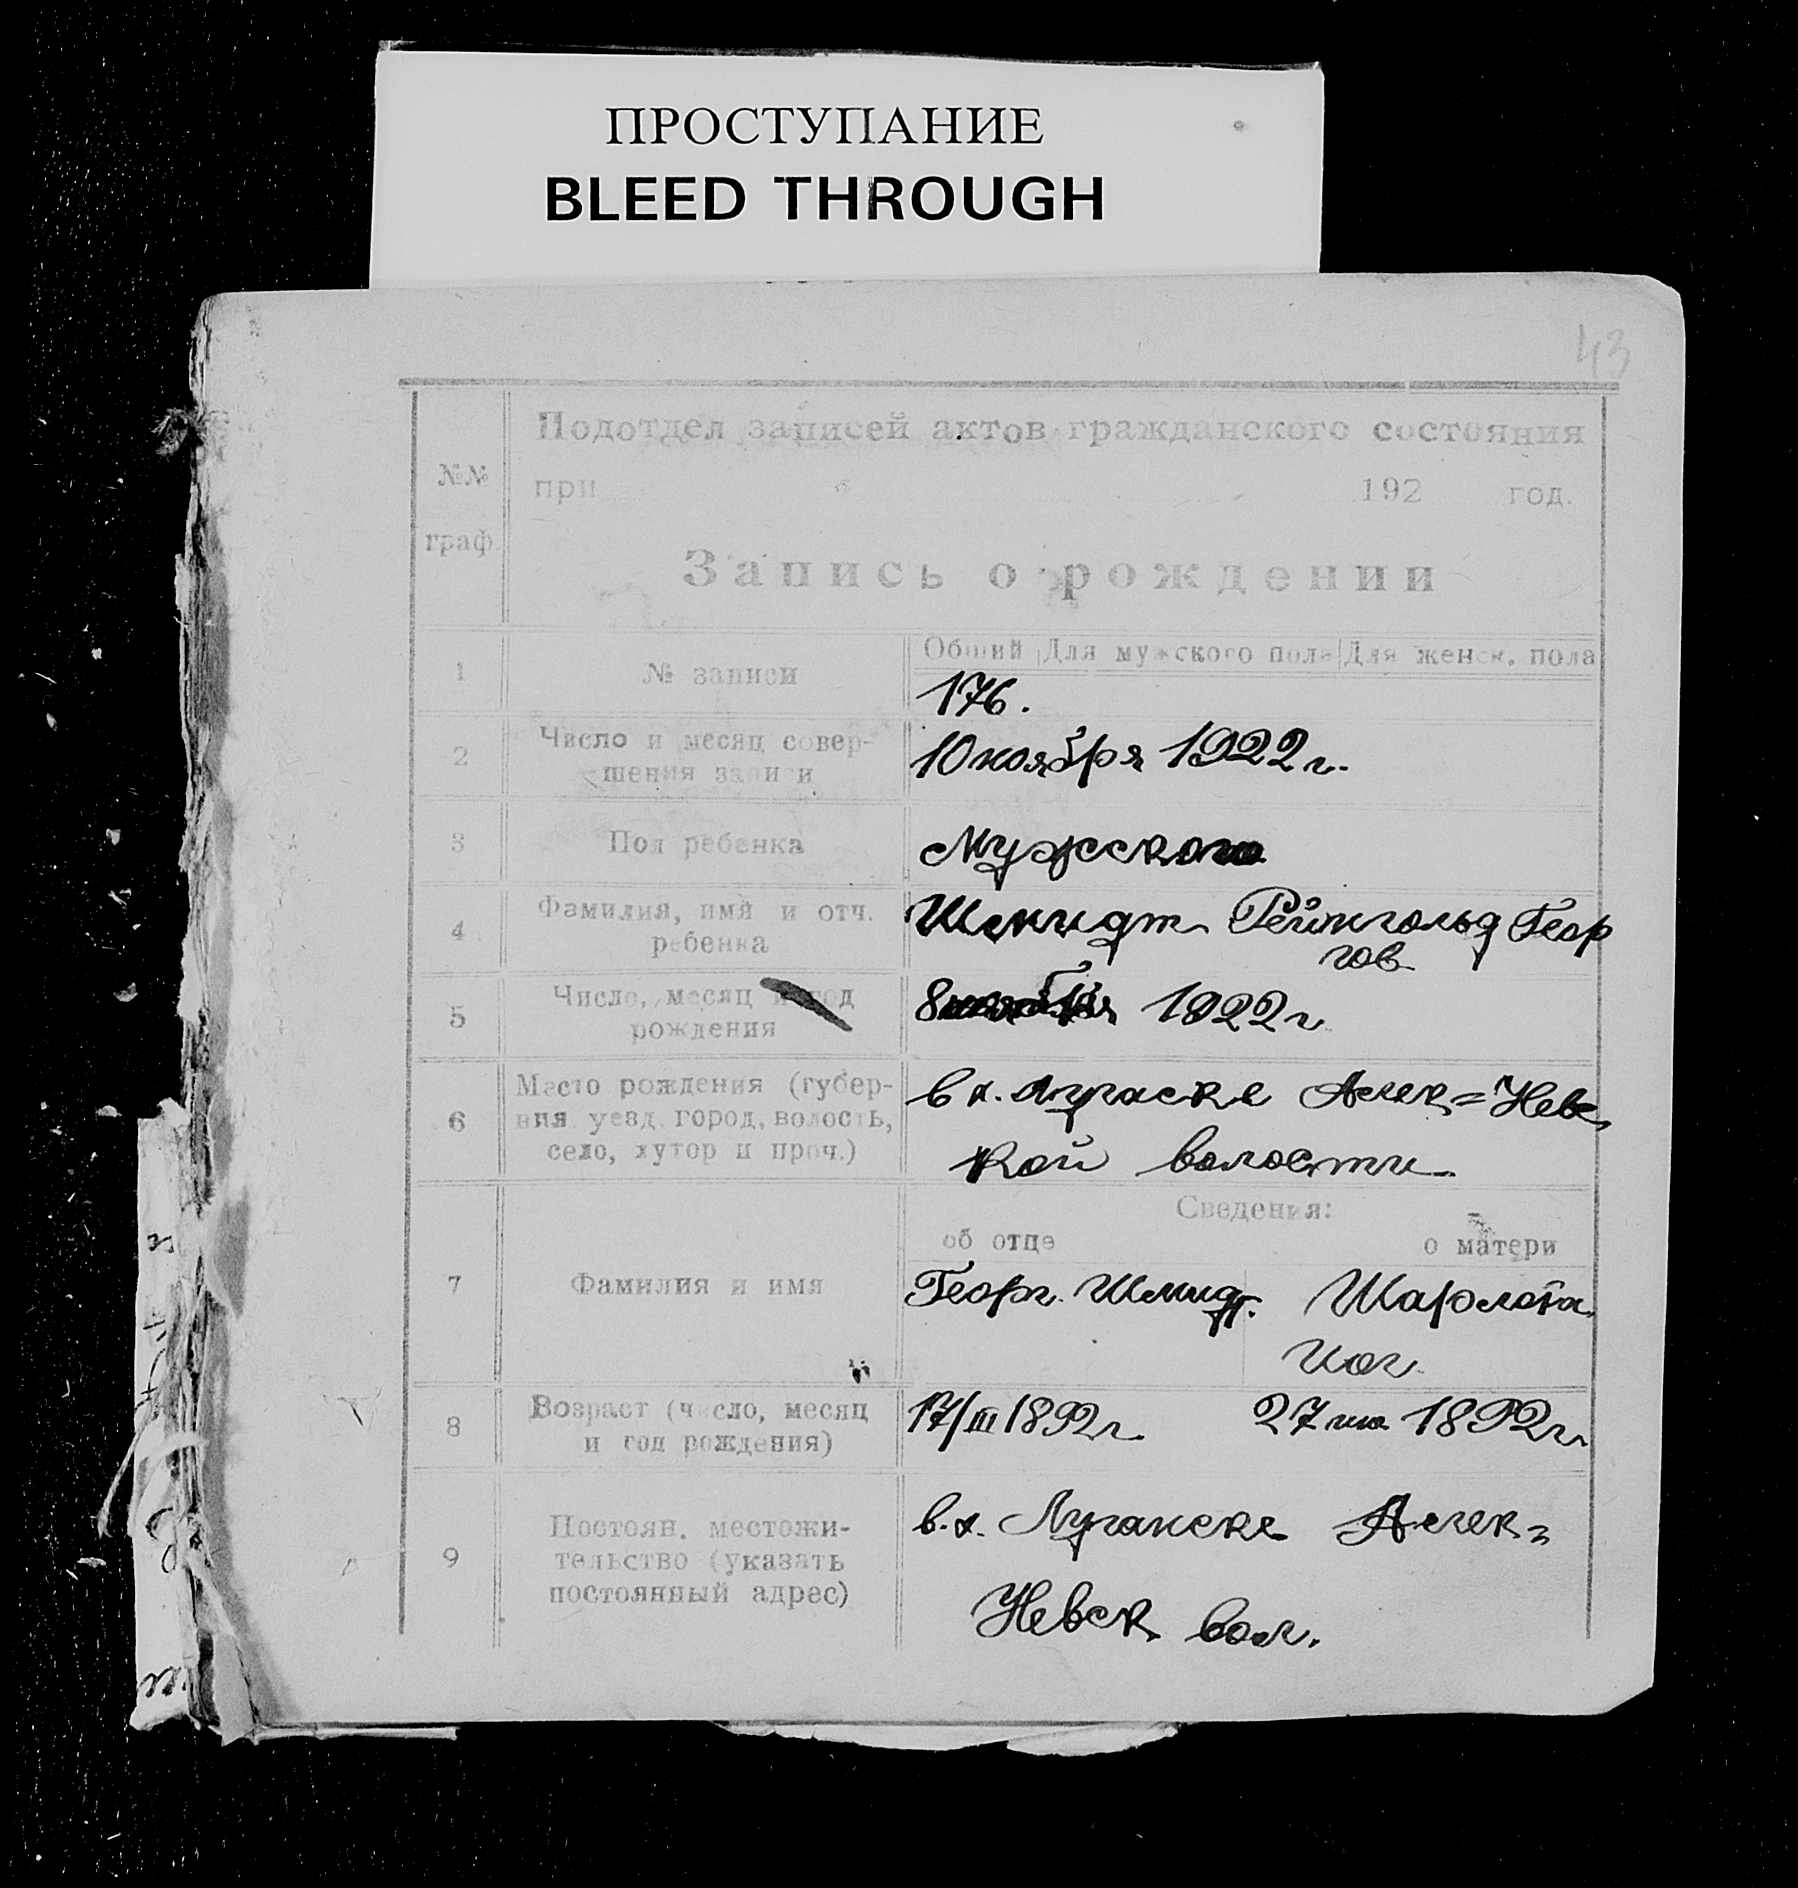 ПРОСТУПАНИЕ
BLEED THROUGH
43
Подотдел записей актов гражданского состояния
№№ при 192 год.
граф.
Запись о рождении
Общий Для мужского пола Для женск. пола
1 № записи
176.
2 Число и месяц совер-
шения записи
10 ноября 1922 г.
3 Пол ребенка
Мужского
4 Фамилия, имя и отч.
ребенка
Шмидт Рейнгольд Геор
гов
5 Число, месяц и год
рождения
8 ноября 1922 г
6 Место рождения (губер-
ния уезд, город, волость,
село, хутор и проч.)
в х. Алек=Невс
кой волости
Сведения:
об отце о матери
7 Фамилия и имя
Георг. Шмидт. Шарлота
Иог.
8 Возраст (число, месяц
и год рождения)
17/III 1892 г. 27 1892 г.
9 Постоян. местожи-
тельство (указать
постоянный адрес)
в. х. Луганске Алек=
Невск вол.